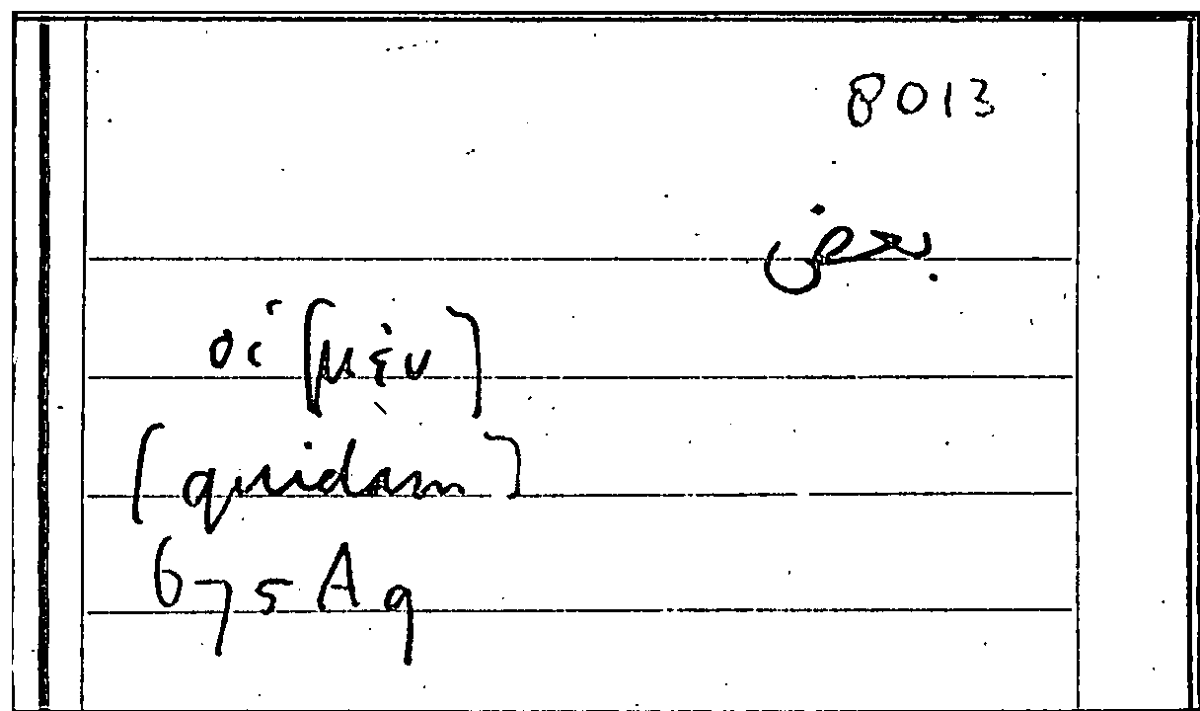 8013
بعض
οἱ [μὲν]
[quidam]
675 A 9